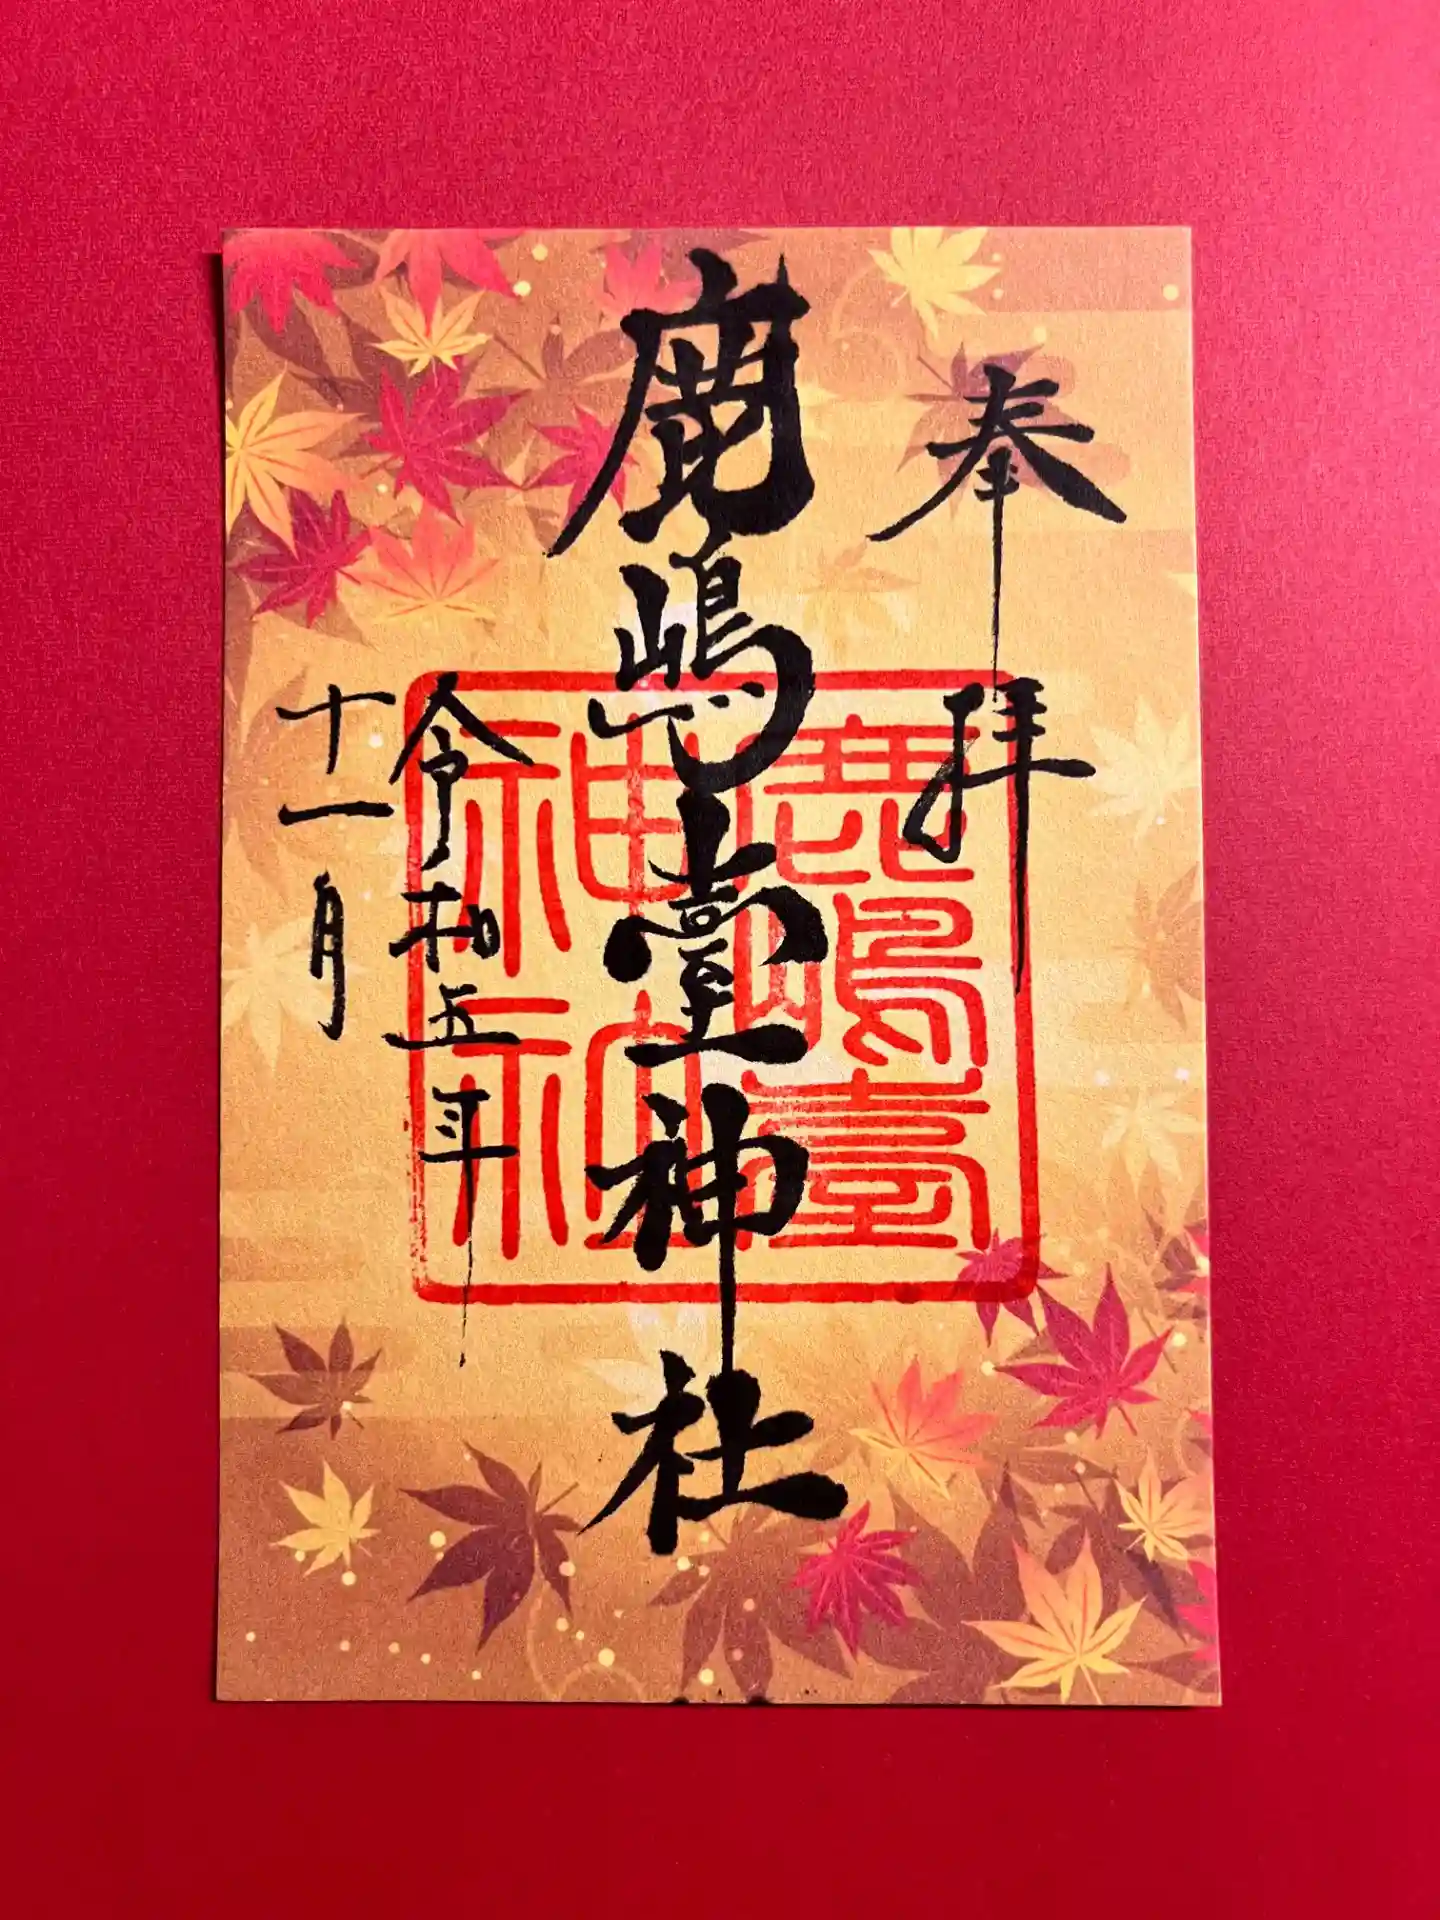 奉拝
鹿嶋臺神社
鹿嶋臺
神社
令和五年
十一月